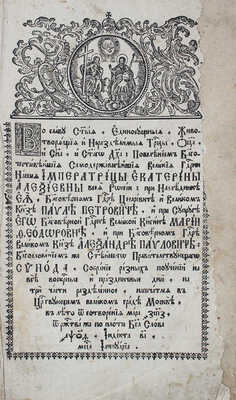 Во славу Ст҃ыѧ, Единосущныѧ, Живо-
творѧщїѧ и Нераздѣлимыѧ Тр҃цы, Оц҃а
и Сн҃а, и Ст҃аго Дх҃а: Повелѣнїемъ Бл҃гоче-
стивѣйшїѧ Самодержавнѣйшїѧ Великїѧ Гд҃рни
Нашеѧ ИМПЕРАТРИЦЫ ЕКАТЕРИНЫ
АЛЕѮІЕВНЫ всеѧ Рѡссїи: при Наслѣдникѣ
ЕѦ, Бл҃говѣрномъ Гд҃рѣ Цесаревичѣ и Великомъ
Кн҃зѣ ПАѴЛѢ ПЕТРОВИЧѢ, и при Супругѣ
ЕГѠ Бл҃говѣрной Гд҃рнѣ Великой Кнѧгинѣ МАРІИ
ѲЕОДѠРОВНѢ: и при Бл҃говѣрномъ Гд҃рѣ
Великомъ Кн҃зѣ АЛЕѮАНДРѢ ПАѴЛОВИЧѢ,
Бл҃гословенїемъ же Ст҃ѣйшагѡ Правительствующагѡ
СѴНОДА, Собранїе разныхъ поученїй на
всѣ воскресны и праздничныѧ дни, на
три части раздѣленное, напечатасѧ въ
Црⷭ҇твующемъ великомъ градѣ Москвѣ,
въ лѣто ѿ сотворенїѧ мїра
ѿ рж҃тва же по плоти Бг҃а Слова
Індїкта
мцⷭ҇а Іаннуарїа